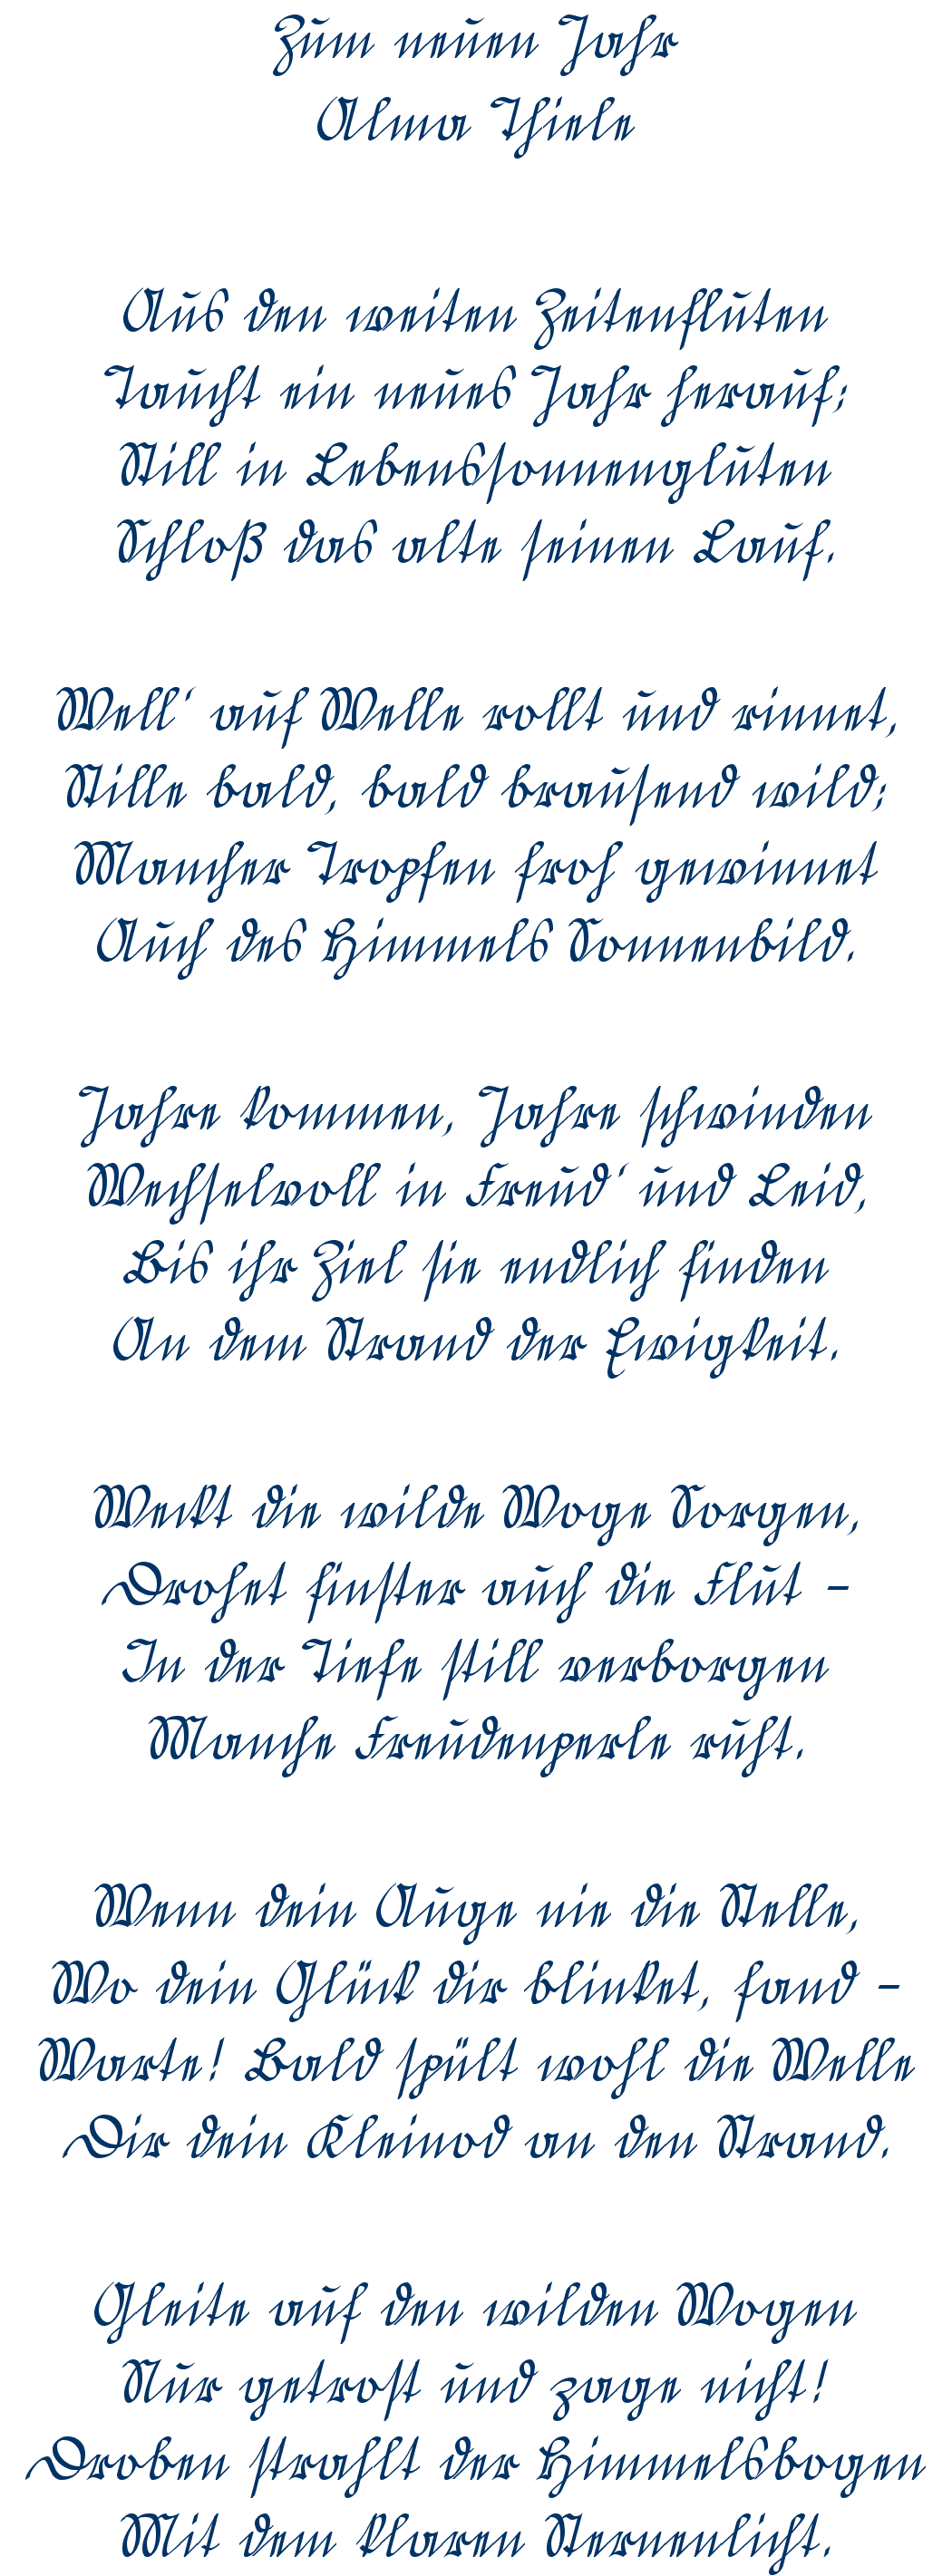 Zum neuen Jahr
Alma Thiele
Aus den weiten Zeitenfluten
Taucht ein neues Jahr herauf;
Still in Lebenssonnengluten
Schloß das alte seinen Lauf.
Well' auf Welle rollt und rinnet,
Stille bald, bald brausend wild;
Mancher Tropfen froh gewinnet
Auch des Himmels Sonnenbild.
Jahre kommen, Jahre schwinden
Wechselvoll in Freud' und Leid,
Bis ihr Ziel sie endlich finden
An dem Strand der Ewigkeit.
Weckt die wilde Woge Sorgen,
Drohet finster auch die Flut –
In der Tiefe still verborgen
Manche Freudenperle ruht.
Wenn dein Auge nie die Stelle,
Wo dein Glück dir blinket, fand –
Warte! Bald spült wohl die Welle
Dir dein Kleinod an den Strand.
Gleite auf den wilden Wogen
Nur getrost und zage nicht!
Droben strahlt der Himmelsbogen
Mit dem klaren Sternenlicht.